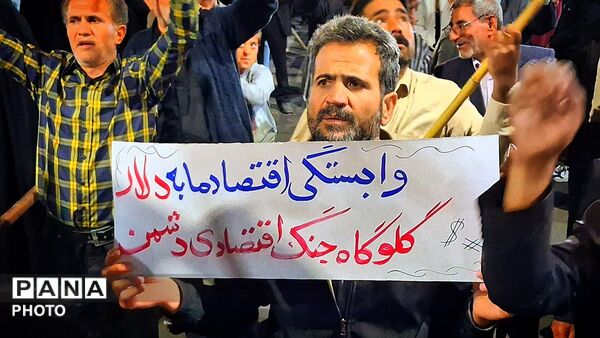 وابستگی اقتصاد ما به دلار
گلوگاه جنگ اقتصادی دشمن
$
PANA
PHOTO